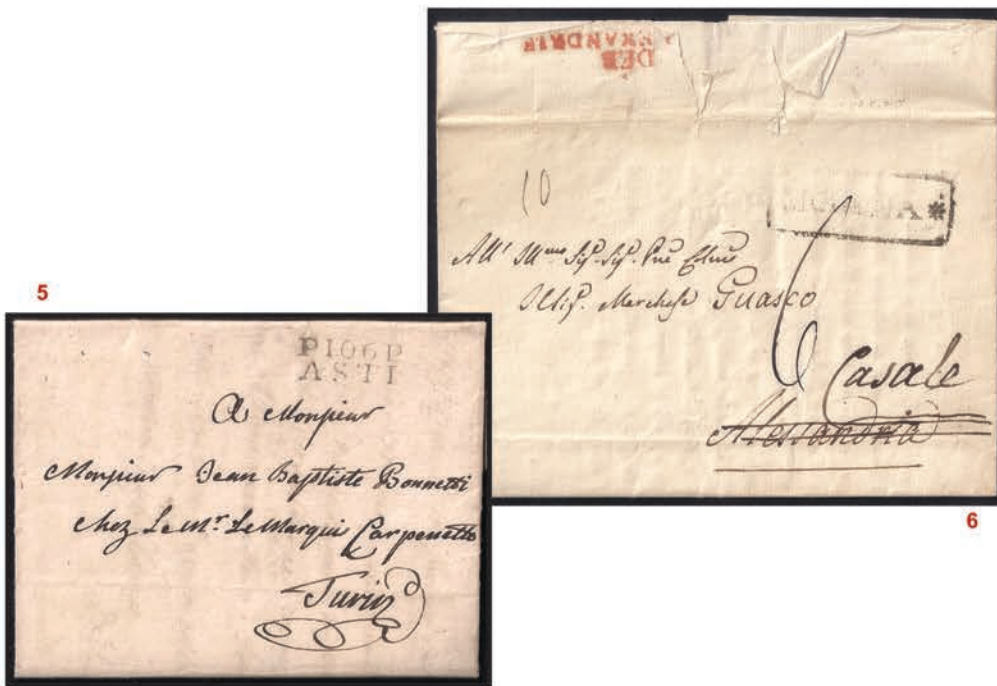 5
P106P
ASTI
A Monsieur
Monsieur Jean Baptiste Bonnetti
chez Le Mr. Le Marqui Carpenetto
Turin
6
DEB
EXANDRIE
10
6
All' Ill.mo Sig. Sig. Pne
Sig. Marchese Guasco
Casale
Alessandria